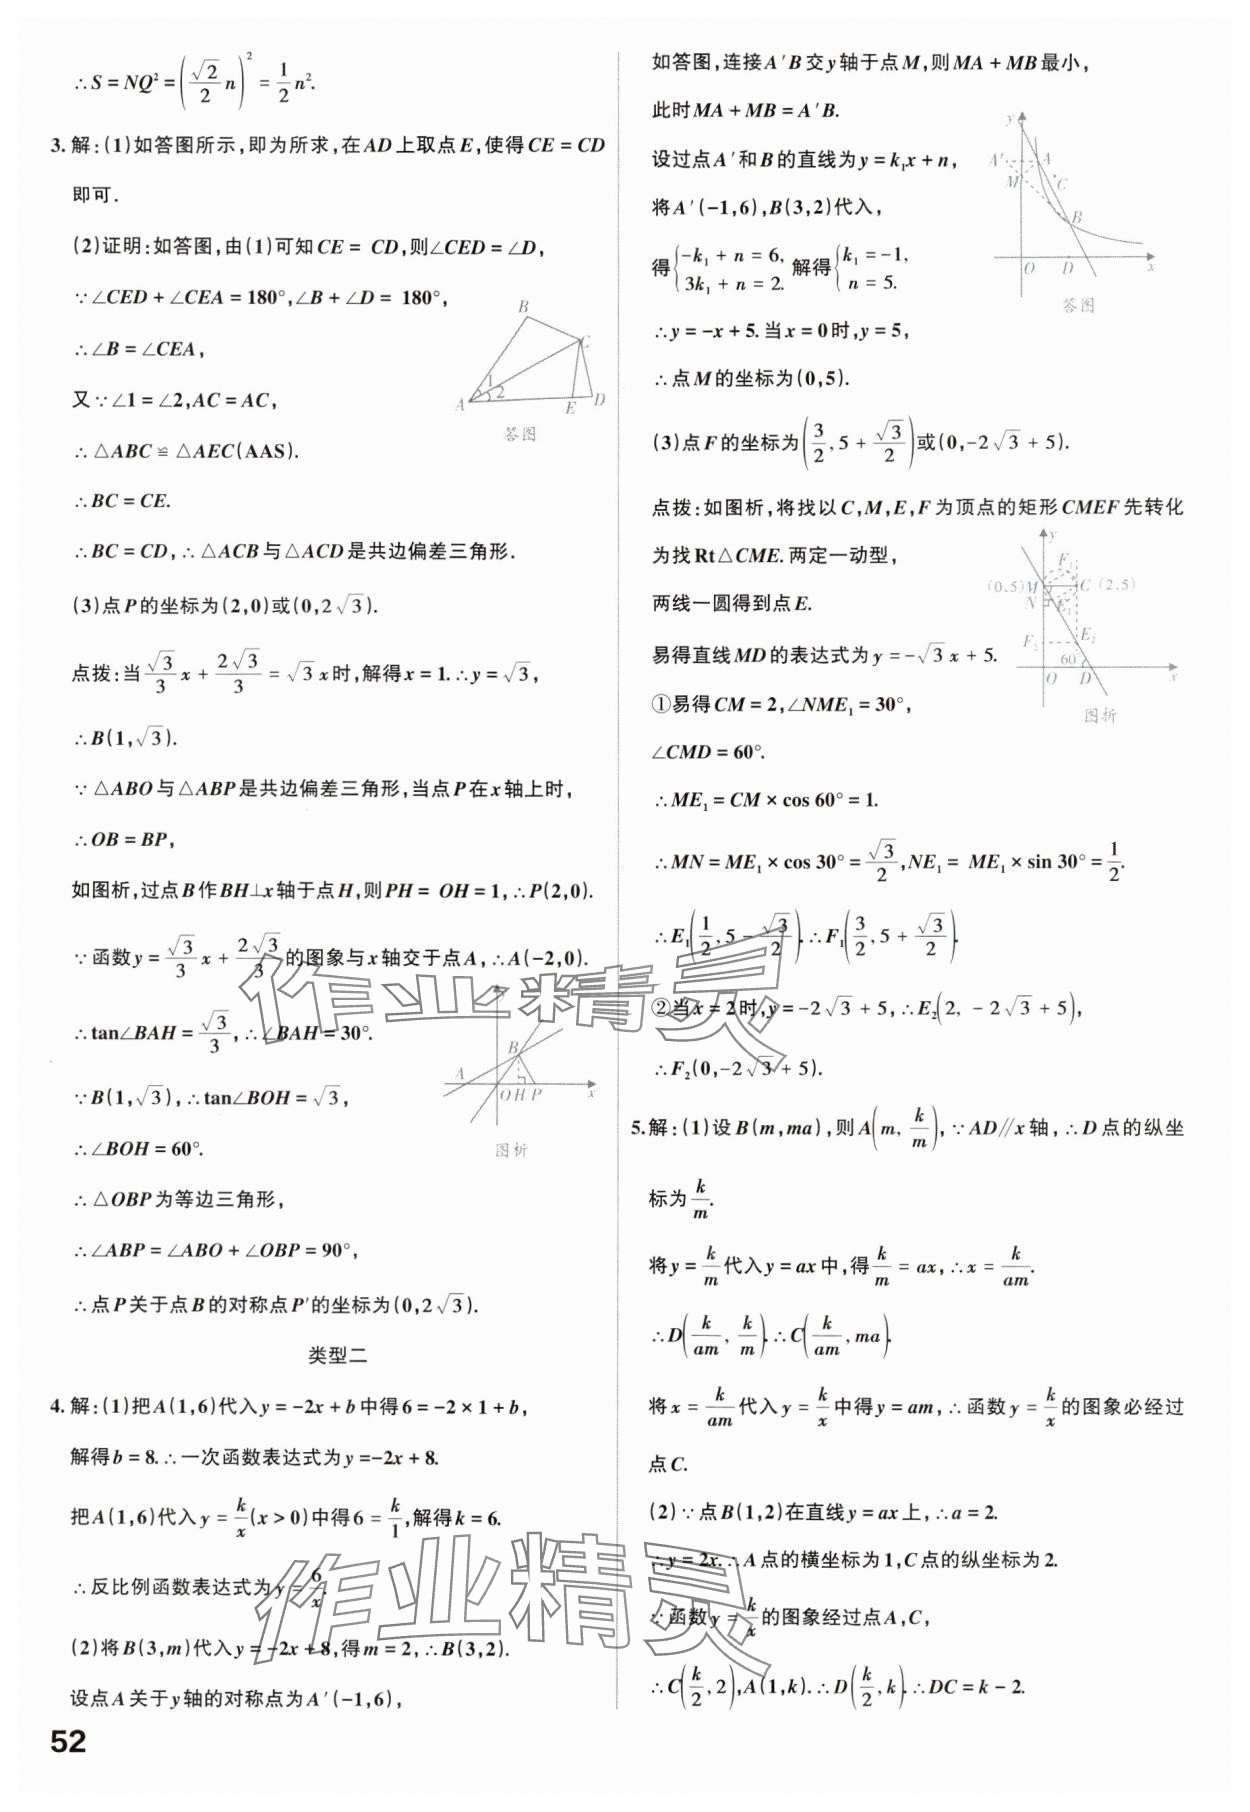 ∴S = NQ² = (√2/2 n)² = 1/2 n².
3. 解:(1)如答图所示,即为所求,在AD上取点E,使得CE = CD
即可.
(2)证明:如答图,由(1)可知CE = CD,则∠CED = ∠D,
∵∠CED + ∠CEA = 180°,∠B + ∠D = 180°,
∴∠B = ∠CEA,
又∵∠1 = ∠2,AC = AC,
∴△ABC ≌ △AEC(AAS).
∴BC = CE.
∴BC = CD,∴△ACB与△ACD是共边偏差三角形.
B
C
1
2
A
E
D
答图
(3)点P的坐标为(2,0)或(0,2√3).
点拨:当 √3/3 x + 2√3/3 = √3 x时,解得x = 1.∴y = √3,
∴B(1,√3).
∵△ABO与△ABP是共边偏差三角形,当点P在x轴上时,
∴OB = BP,
如图析,过点B作BH⊥x轴于点H,则PH = OH = 1,∴P(2,0).
∵函数y = √3/3 x + 2√3/3 的图象与x轴交于点A,∴A(-2,0).
∴tan∠BAH = √3/3,∴∠BAH = 30°.
∵B(1,√3),∴tan∠BOH = √3,
∴∠BOH = 60°.
∴△OBP为等边三角形,
∴∠ABP = ∠ABO + ∠OBP = 90°,
∴点P关于点B的对称点P′的坐标为(0,2√3).
A
B
O H P
x
图析
类型二
4. 解:(1)把A(1,6)代入y = -2x + b中得6 = -2 × 1 + b,
解得b = 8.∴一次函数表达式为y = -2x + 8.
把A(1,6)代入y = k/x (x > 0)中得6 = k/1,解得k = 6.
∴反比例函数表达式为y = 6/x.
(2)将B(3,m)代入y = -2x + 8,得m = 2,∴B(3,2).
设点A关于y轴的对称点为A′(-1,6),
52
如答图,连接A′B交y轴于点M,则MA + MB最小,
此时MA + MB = A′B.
设过点A′和B的直线为y = k₁x + n,
将A′(-1,6),B(3,2)代入,
得{-k₁ + n = 6, 3k₁ + n = 2. 解得{k₁ = -1, n = 5.
∴y = -x + 5.当x = 0时,y = 5,
∴点M的坐标为(0,5).
y
A′
A
M
C
B
O
D
x
答图
(3)点F的坐标为(3/2, 5 + √3/2)或(0,-2√3 + 5).
点拨:如图析,将找以C,M,E,F为顶点的矩形CMEF先转化
为找Rt△CME.两定一动型,
两线一圆得到点E.
易得直线MD的表达式为y = -√3 x + 5.
①易得CM = 2,∠NME₁ = 30°,
∠CMD = 60°.
y
F₁
(0,5)M
C (2,5)
N
E₁
F₂
E₂
60
O
D
x
图析
∴ME₁ = CM × cos 60° = 1.
∴MN = ME₁ × cos 30° = √3/2,NE₁ = ME₁ × sin 30° = 1/2.
∴E₁(1/2, 5 - √3/2).∴F₁(3/2, 5 + √3/2).
②当x = 2时,y = -2√3 + 5,∴E₂(2, -2√3 + 5),
∴F₂(0,-2√3 + 5).
5. 解:(1)设B(m,ma),则A(m, k/m),∵AD∥x轴,∴D点的纵坐
标为 k/m.
将y = k/m 代入y = ax中,得 k/m = ax,∴x = k/am.
∴D(k/am, k/m).∴C(k/am, ma).
将x = k/am 代入y = k/x 中得y = am,∴函数y = k/x 的图象必经过
点C.
(2)∵点B(1,2)在直线y = ax上,∴a = 2.
∴y = 2x.∴A点的横坐标为1,C点的纵坐标为2.
∵函数y = k/x 的图象经过点A,C,
∴C(k/2, 2),A(1,k).∴D(k/2, k).∴DC = k - 2.
作业精灵
作业精灵